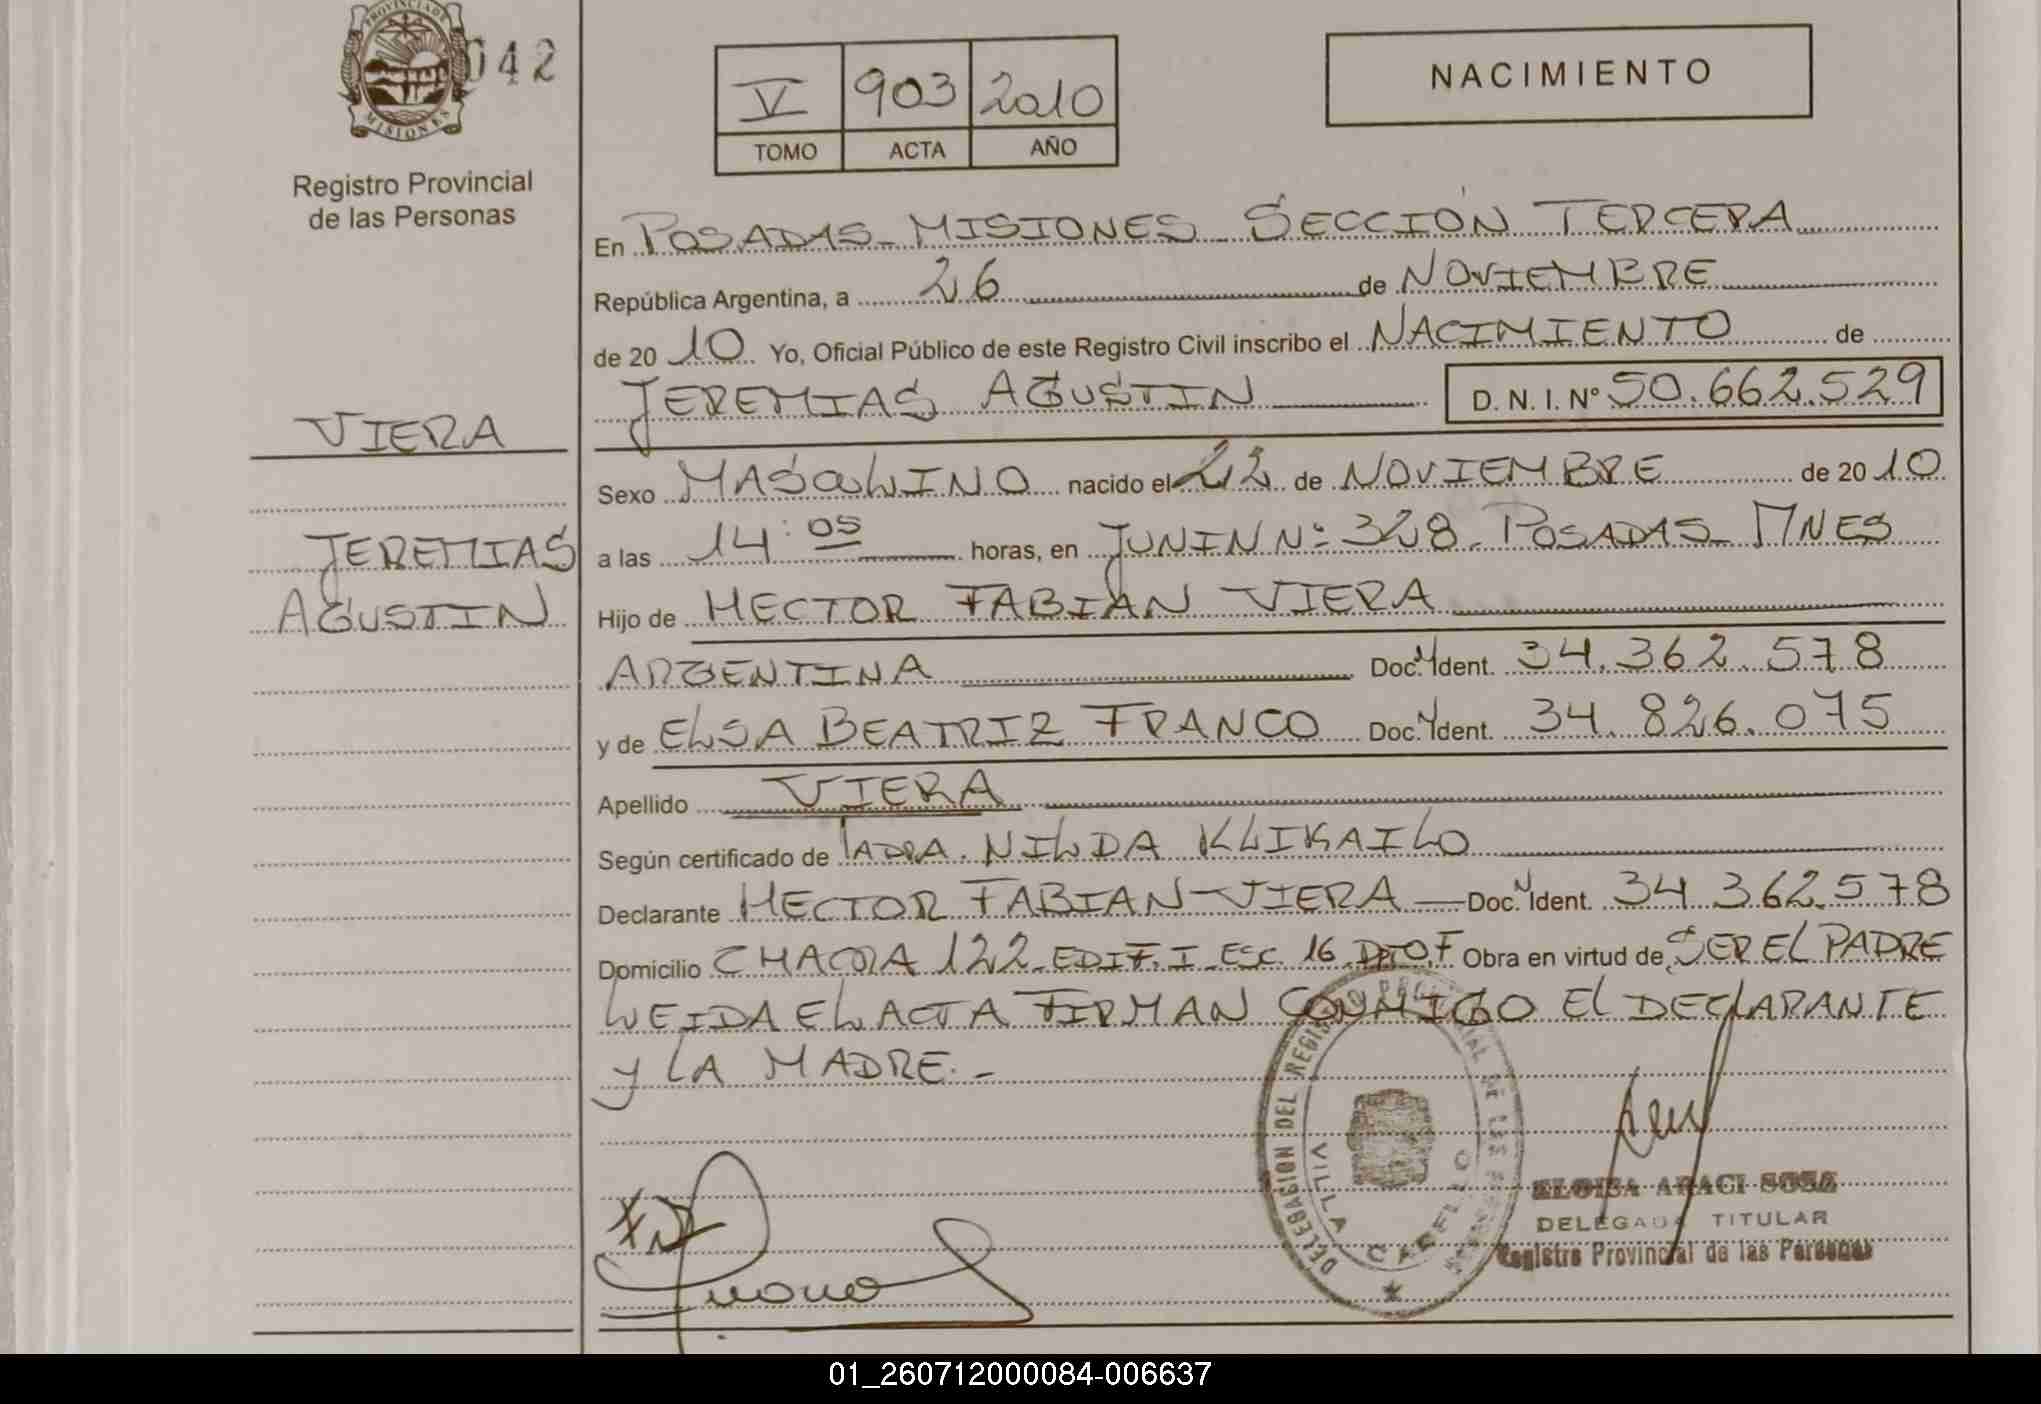 PROVINCIA DE
MISIONES
042
Registro Provincial
de las Personas
V 903 2010
TOMO ACTA AÑO
NACIMIENTO
En POSADAS - MISIONES - SECCIÓN TERCERA
República Argentina, a 26 de NOVIEMBRE
de 20 10 Yo, Oficial Público de este Registro Civil inscribo el NACIMIENTO de
JEREMIAS AGUSTIN D. N. I. Nº 50.662.529
VIERA
Sexo MASCULINO nacido el 22 de NOVIEMBRE de 20 10
JEREMIAS
a las 14:05 horas, en JUNIN Nº 328 - POSADAS - MNES
AGUSTIN
Hijo de HECTOR FABIAN VIERA
ARGENTINA Doc. Ident. 34.362.578
y de ELSA BEATRIZ FRANCO Doc. Ident. 34.826.075
Apellido VIERA
Según certificado de NILDA KLIKAILO
Declarante HECTOR FABIAN VIERA — Doc. Ident. 34.362.578
Domicilio CHACRA 122 - EDIF. I - ESC. 16 DPTO. F Obra en virtud de SER EL PADRE
LEIDA EL ACTA FIRMAN CONMIGO EL DECLARANTE
y LA MADRE. -
DELEGACION DEL REGISTRO PROVINCIAL DE LAS PERSONAS
VILLA CABELLO
ELOISA ARACI SOSA
DELEGADA TITULAR
Registro Provincial de las Personas
01_260712000084-006637